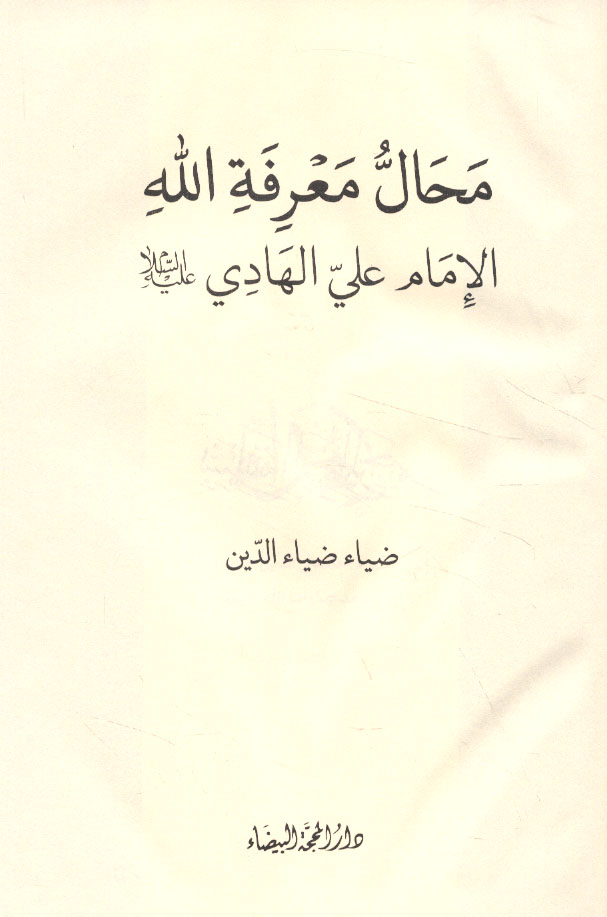 مَحَالُّ مَعْرِفَةِ اللهِ
الإِمَام عليّ الهَادِي عليه السلام
ضياء ضياء الدّين
دار المحجّة البيضاء